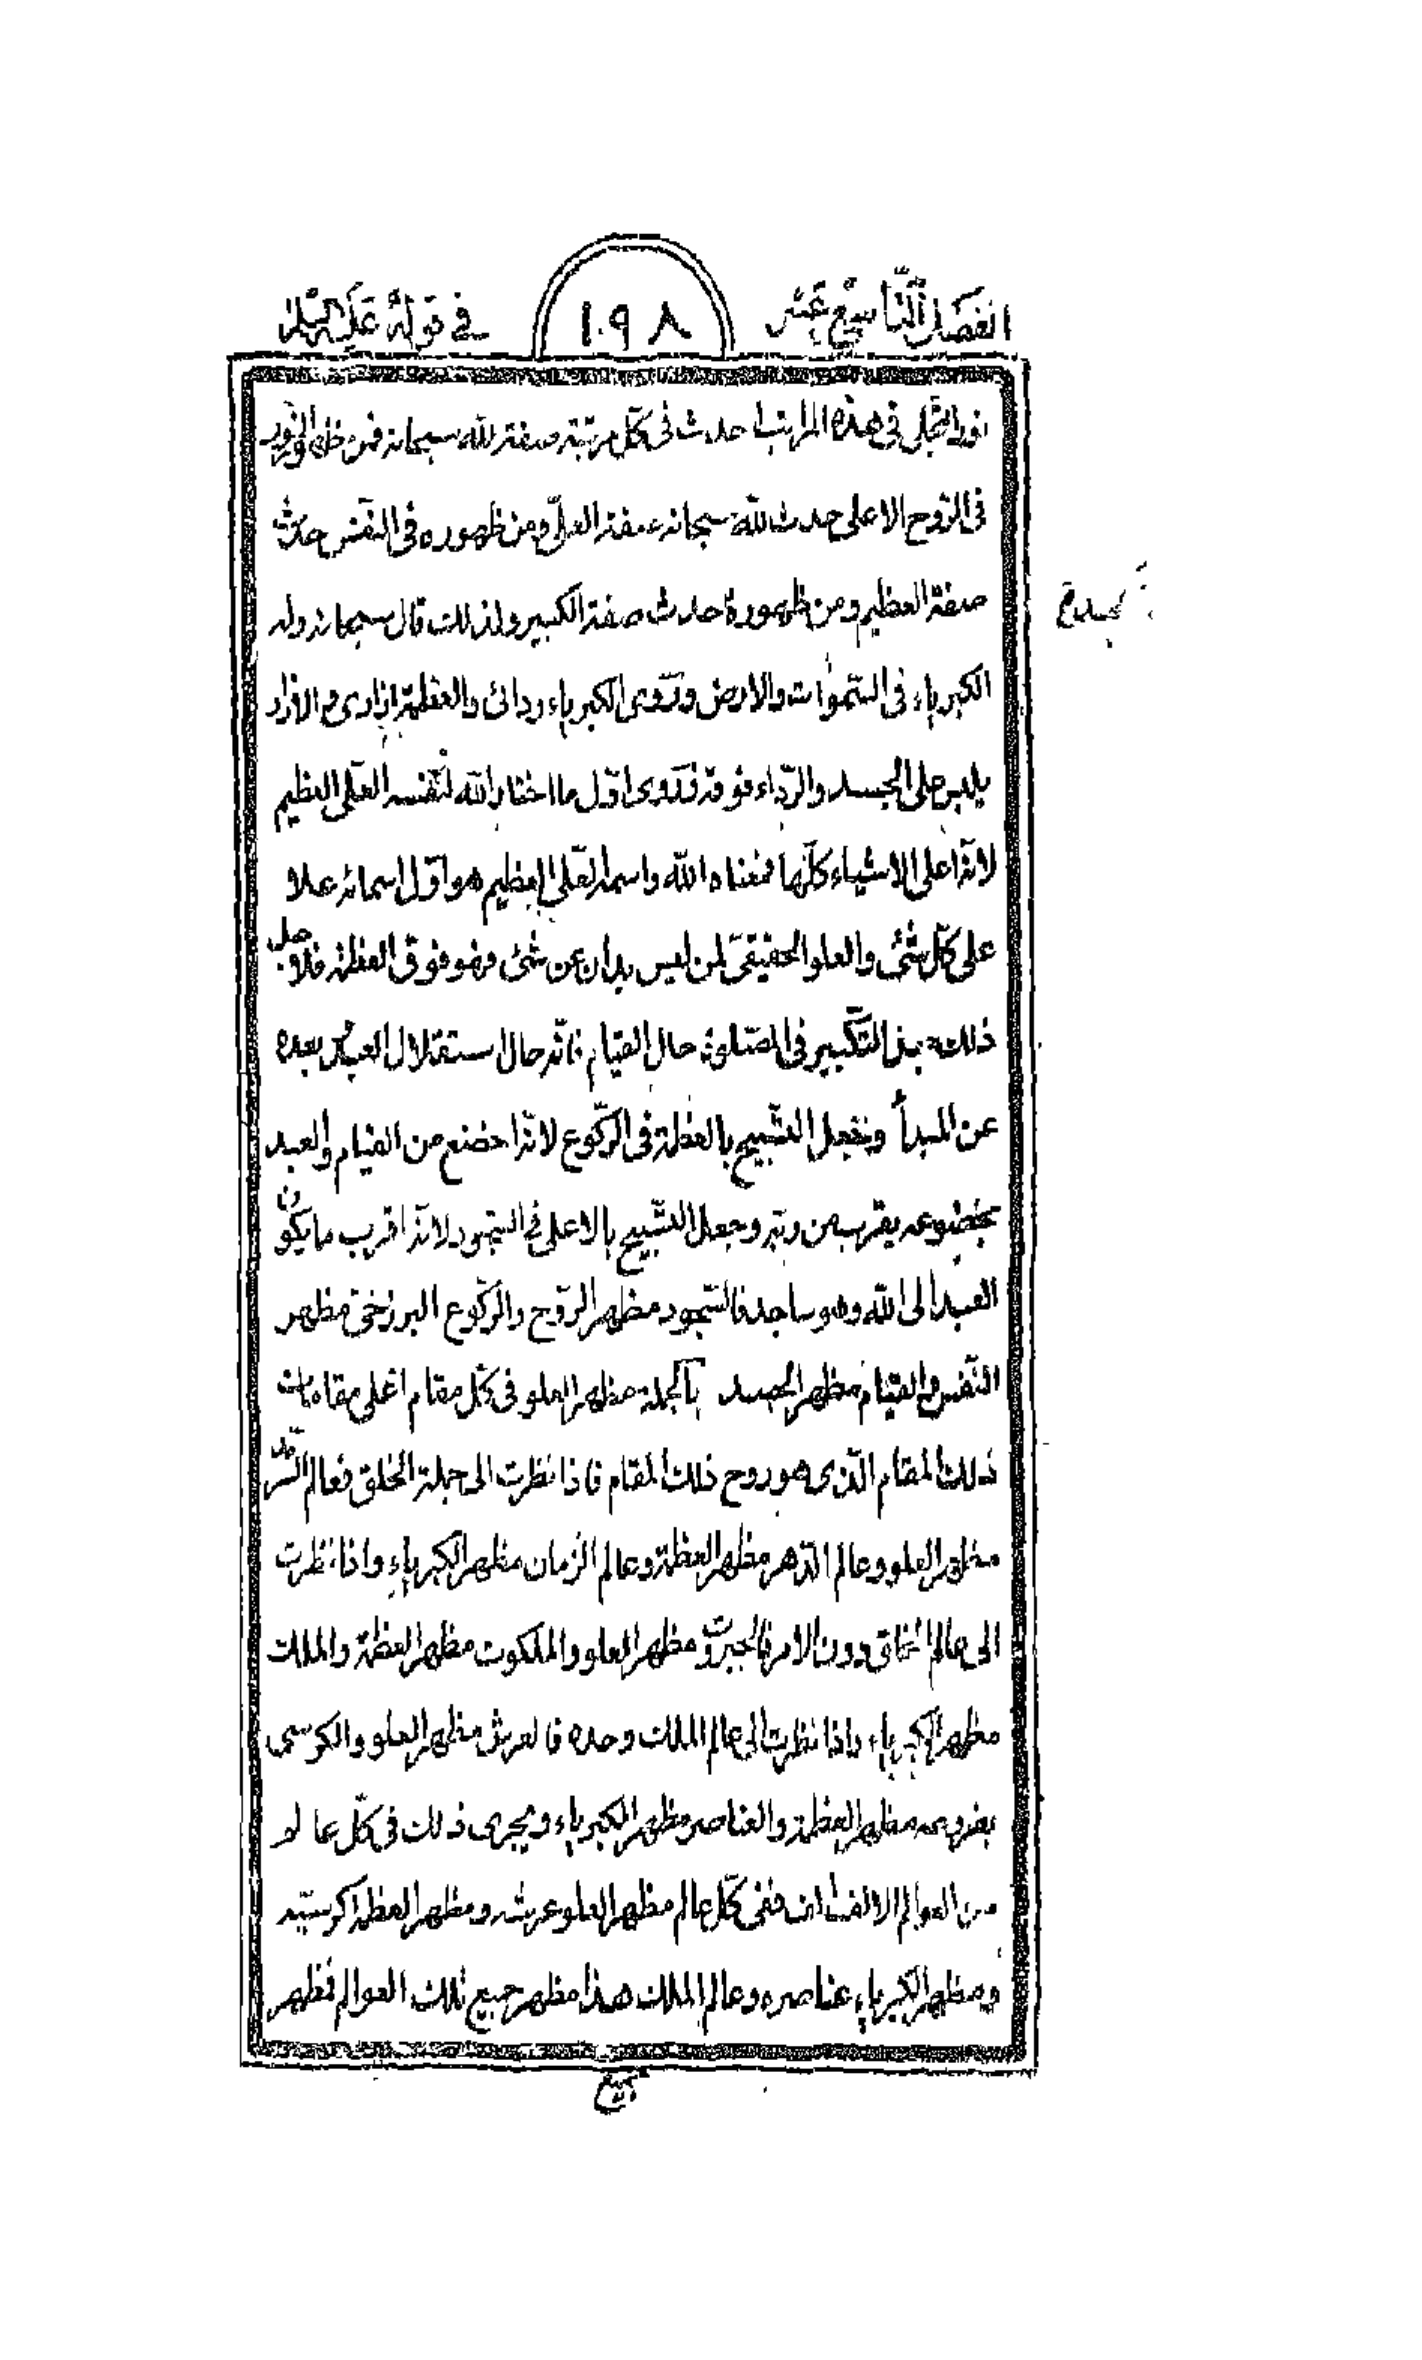 الفصل التاسع عشر
١٩٨
في قوله عليه السلام
نور التجلى فى هذه المراتب احدث فى كل مرتبة صفة لله سبحانه فمن ظهور النور
فى الروح الاعلى حدث لله سبحانه صفة العلى ومن ظهوره فى النفس حدث
صفة العظيم ومن ظهوره حدث صفة الكبير ولذلك قال سبحانه وله
الكبرياء فى السموات والارض وروى الكبرياء ردائى والعظمة ازارى والازار
يلبس على الجسد والرداء فوقه وروى اول ما اختار الله لنفسه العلى العظيم
لانه اعلى الاشياء كلها فمعناه الله واسمه العلى العظيم هو اول اسمائه علا
على كل شئ والعلو الحقيقى لمن ليس ببائن عن شئ فهو فوق العظمة فلاجل
ذلك التكبير فى الصلوة حال القيام فانه حال استقلال العبد وبعده
عن المبدأ وجعل التسبيح بالعظمة فى الركوع لانه اخضع من القيام والعبد
بخضوعه يقرب من ربه وجعل التسبيح بالاعلى فى السجود لانه اقرب ما يكون
العبد الى الله وهو ساجد فالسجود مظهر الروح والركوع البرزخى مظهر
النفس والقيام مظهر الجسد بالجملة مظهر العلو فى كل مقام اعلى مقامات
ذلك المقام الذى هو روح ذلك المقام فاذا نظرت الى جملة الخلق فعالم السرمد
مظهر العلو وعالم الدهر مظهر العظمة وعالم الزمان مظهر الكبرياء واذا نظرت
الى عالم الخلق دون الامر فالجبروت مظهر العلو والملكوت مظهر العظمة والملك
مظهر الكبرياء واذا نظرت الى عالم الملك وحده فالعرش مظهر العلو والكرسى
مظهر العظمة والعناصر مظهر الكبرياء ويجرى ذلك فى كل عالم
من العوالم الالف الف ففى كل عالم مظهر العلو عرشه ومظهر العظمة كرسيه
ومظهر الكبرياء عناصره وعالم الملك هذا مظهر جميع تلك العوالم فظهر
جميع